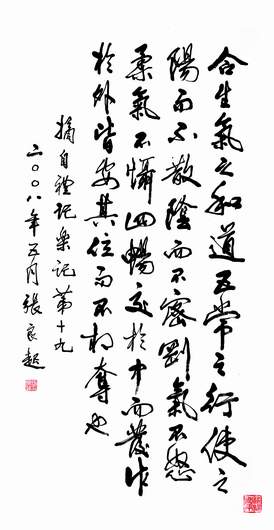 合生氣之和道五常之行使之
陽而不散陰而不密剛氣不怒
柔氣不懾四暢交於中而發作
於外皆安其位而不相奪也
摘自禮記樂記第十九
二〇〇八年五月張良超